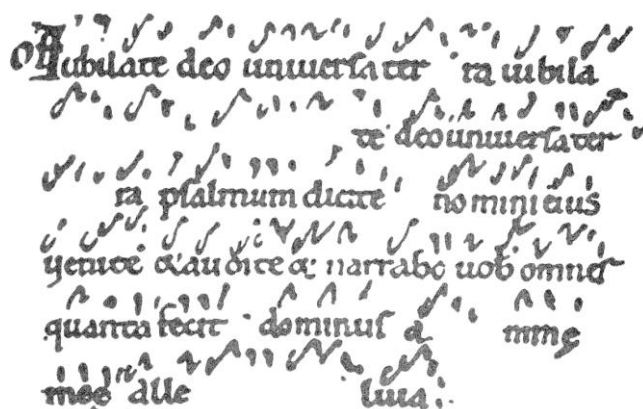 Off Iubilate deo uniuersa ter ra iubila
te deo uniuersa ter
ra psalmum dicite nomini eius
uenite & audite & narrabo uob omnes
quanta fecit dominus a nimę
meę alle luia